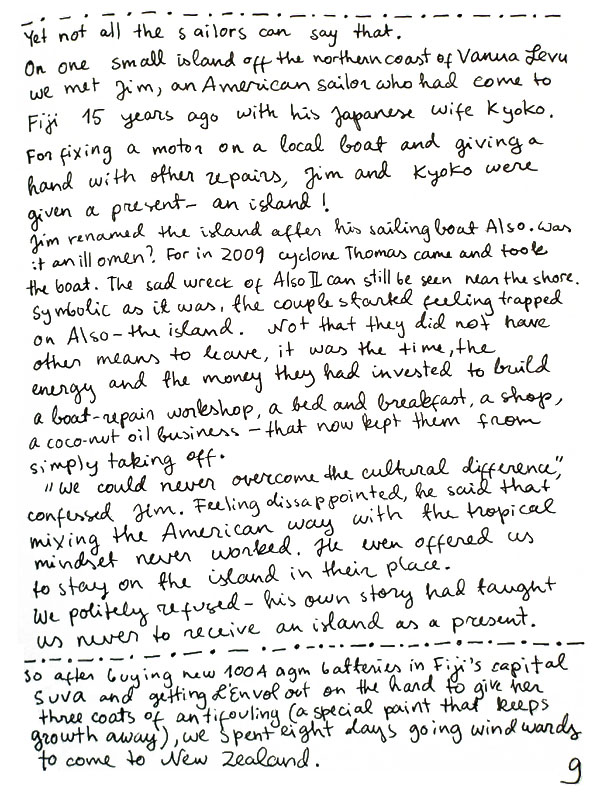 Yet not all the sailors can say that.
On one small island off the northern coast of Vanua Levu
we met Jim, an American sailor who had come to
Fiji 15 years ago with his Japanese wife Kyoko.
For fixing a motor on a local boat and giving a
hand with other repairs, Jim and Kyoko were
given a present - an island!
Jim renamed the island after his sailing boat Also. Was
it an ill omen? For in 2009 cyclone Thomas came and took
the boat. The sad wreck of Also II can still be seen near the shore.
Symbolic as it was, the couple started feeling trapped
on Also - the island. Not that they did not have
other means to leave, it was the time, the
energy and the money they had invested to build
a boat-repair workshop, a bed and breakfast, a shop,
a coco-nut oil business - that now kept them from
simply taking off.
"We could never overcome the cultural difference",
confessed Jim. Feeling dissappointed, he said that
mixing the American way with the tropical
mindset never worked. He even offered us
to stay on the island in their place.
We politely refused - his own story had taught
us never to receive an island as a present.
So after buying new 100A agm batteries in Fiji's capital
Suva and getting L'Envol out on the hard to give her
three coats of antifouling (a special paint that keeps
growth away), we spent eight days going windwards
to come to New Zealand.
9